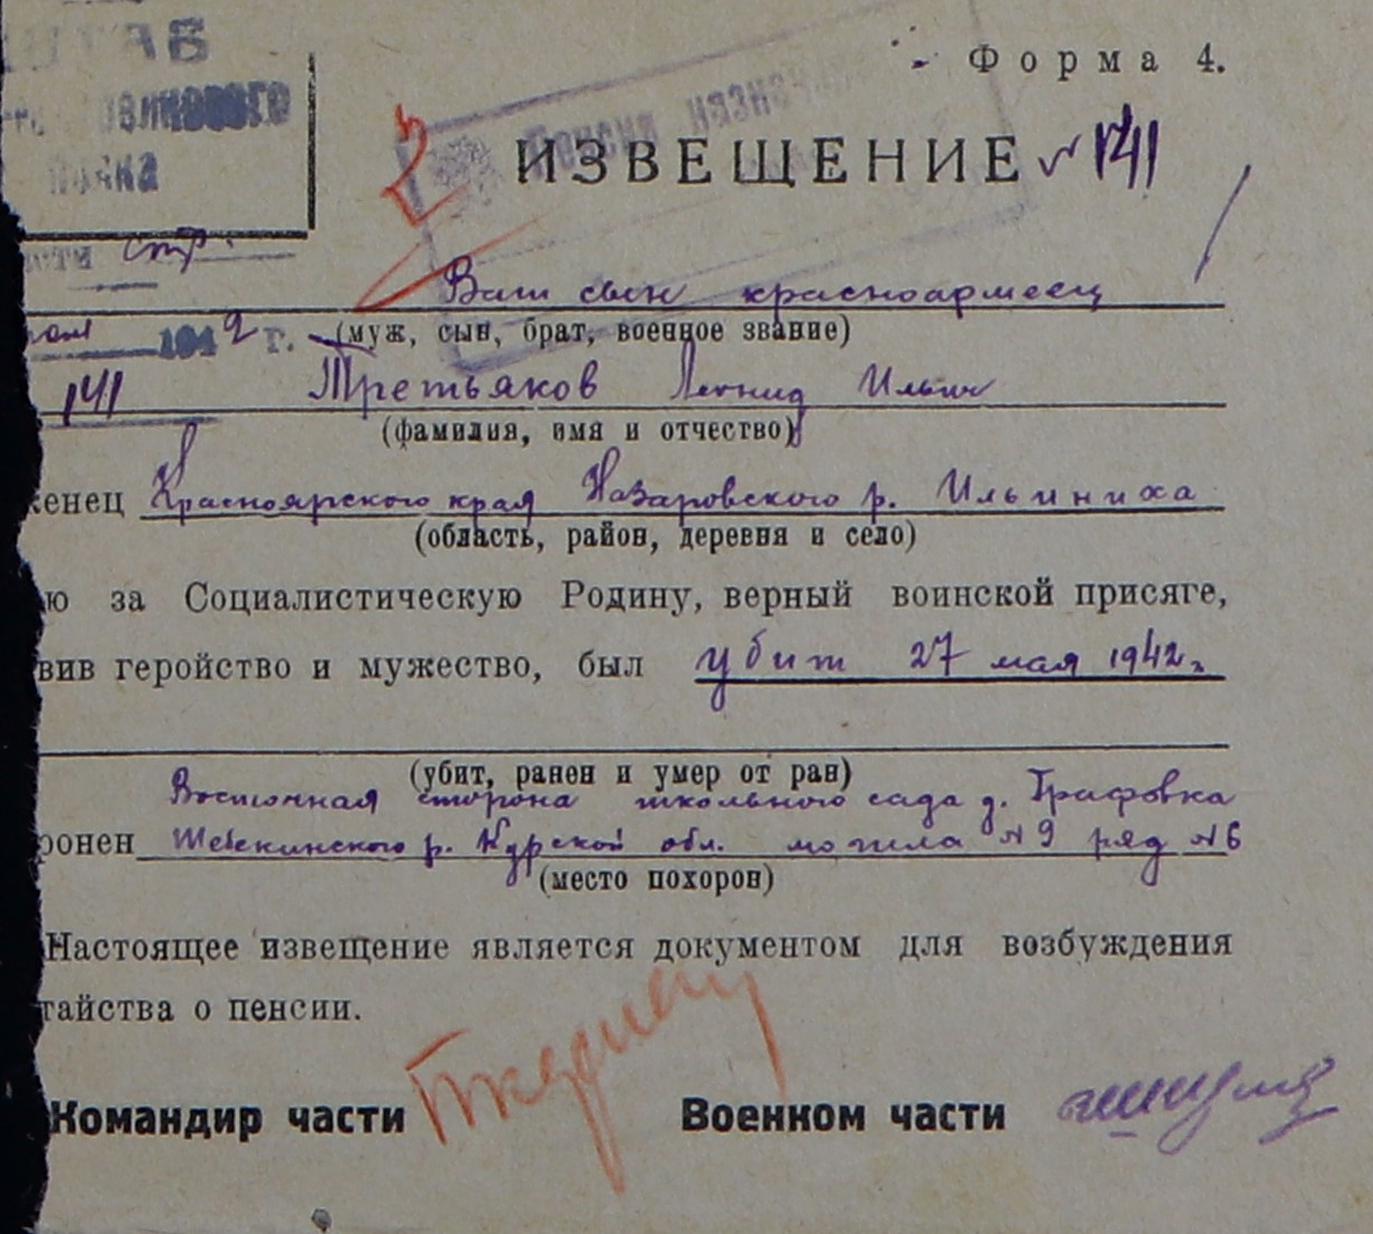 ШТАБ
Форма 4.
ПОЛКА
ИЗВЕЩЕНИЕ № 141
стр.
Ваш сын красноармеец
1942 г. (муж, сын, брат, военное звание)
141 Третьяков Леонид Ильич
(фамилия, имя и отчество)
женец Красноярского края Назаровского р. Ильиниха
(область, район, деревня и село)
ю за Социалистическую Родину, верный воинской присяге,
вив геройство и мужество, был убит 27 мая 1942 г.
(убит, ранен и умер от ран)
Восточная сторона школьного сада д. Графовка
ронен Шебекинского р. Курской обл. могила № 9 ряд № 6
(место похорон)
Настоящее извещение является документом для возбуждения
тайства о пенсии.
Командир части Военком части